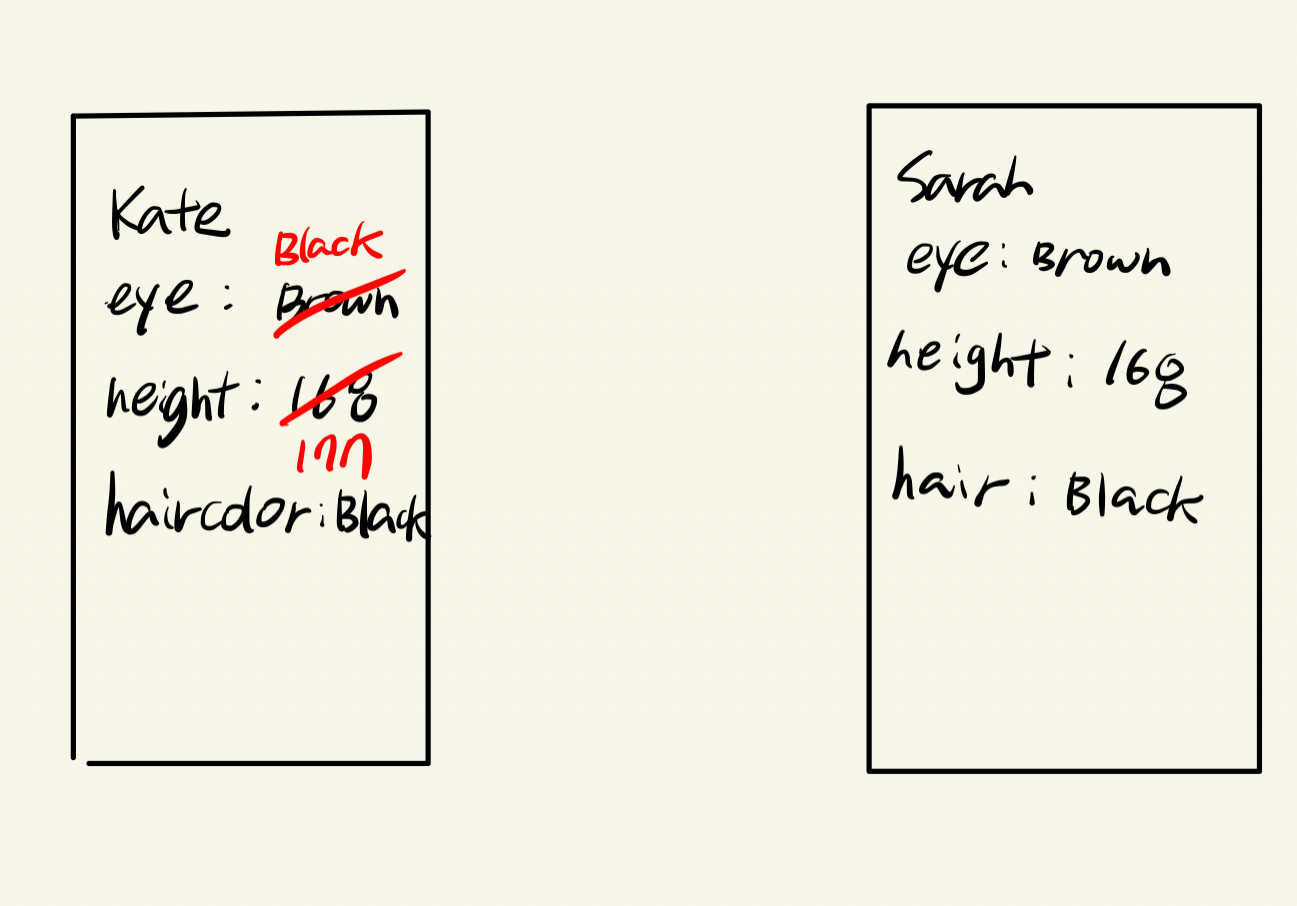 Kate
Black
eye : Brown
height : 168
177
haircolor : Black
Sarah
eye : Brown
height : 168
hair : Black